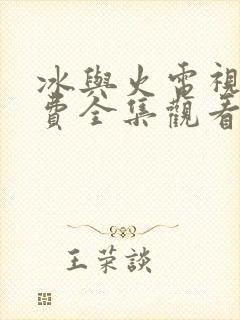 冰與火電視
費全集觀看
王荣談